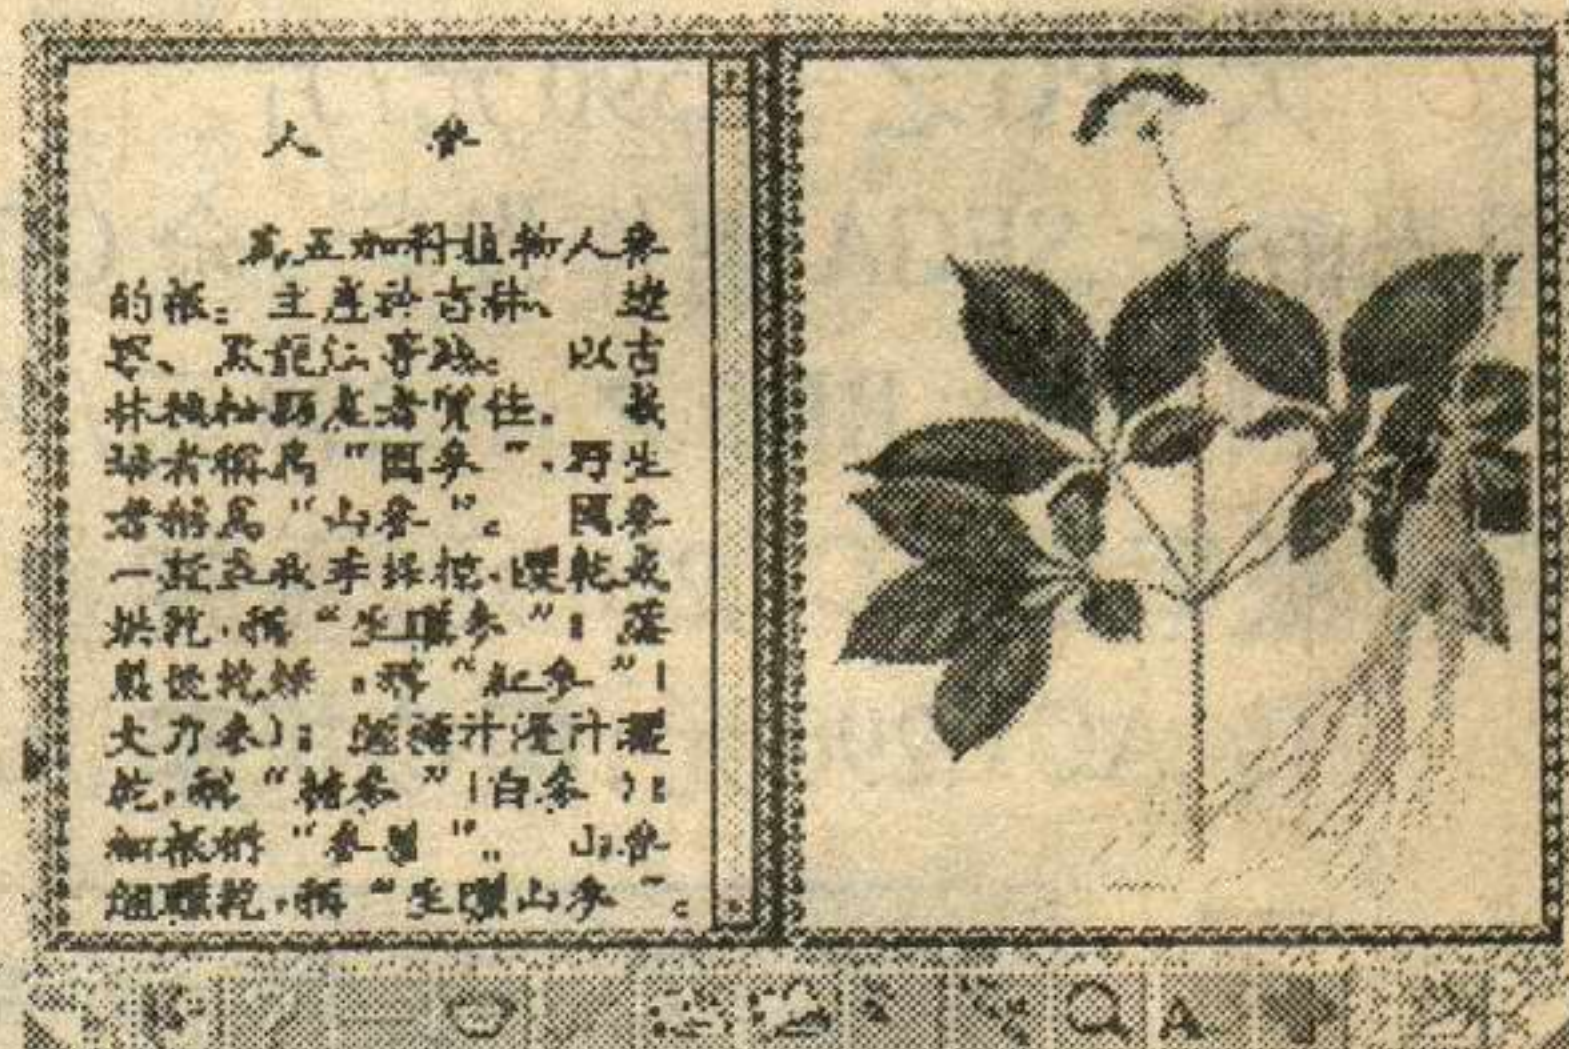 人 參
為五加科植物人參
的根。主產於吉林、 遼
寧、黑龍江等地。 以吉
林撫松縣產者質佳。 栽
培者稱為“園參”，野生
者稱為“山參”。 園參
一般在秋季採挖，曬乾或
烘乾，稱“生曬參”；蒸
製後乾燥，稱“紅參”（
大力參）；
乾，稱“糖參”（白參）；
細根稱“參鬚”。 山參
曬乾，稱“生曬山參”。
A